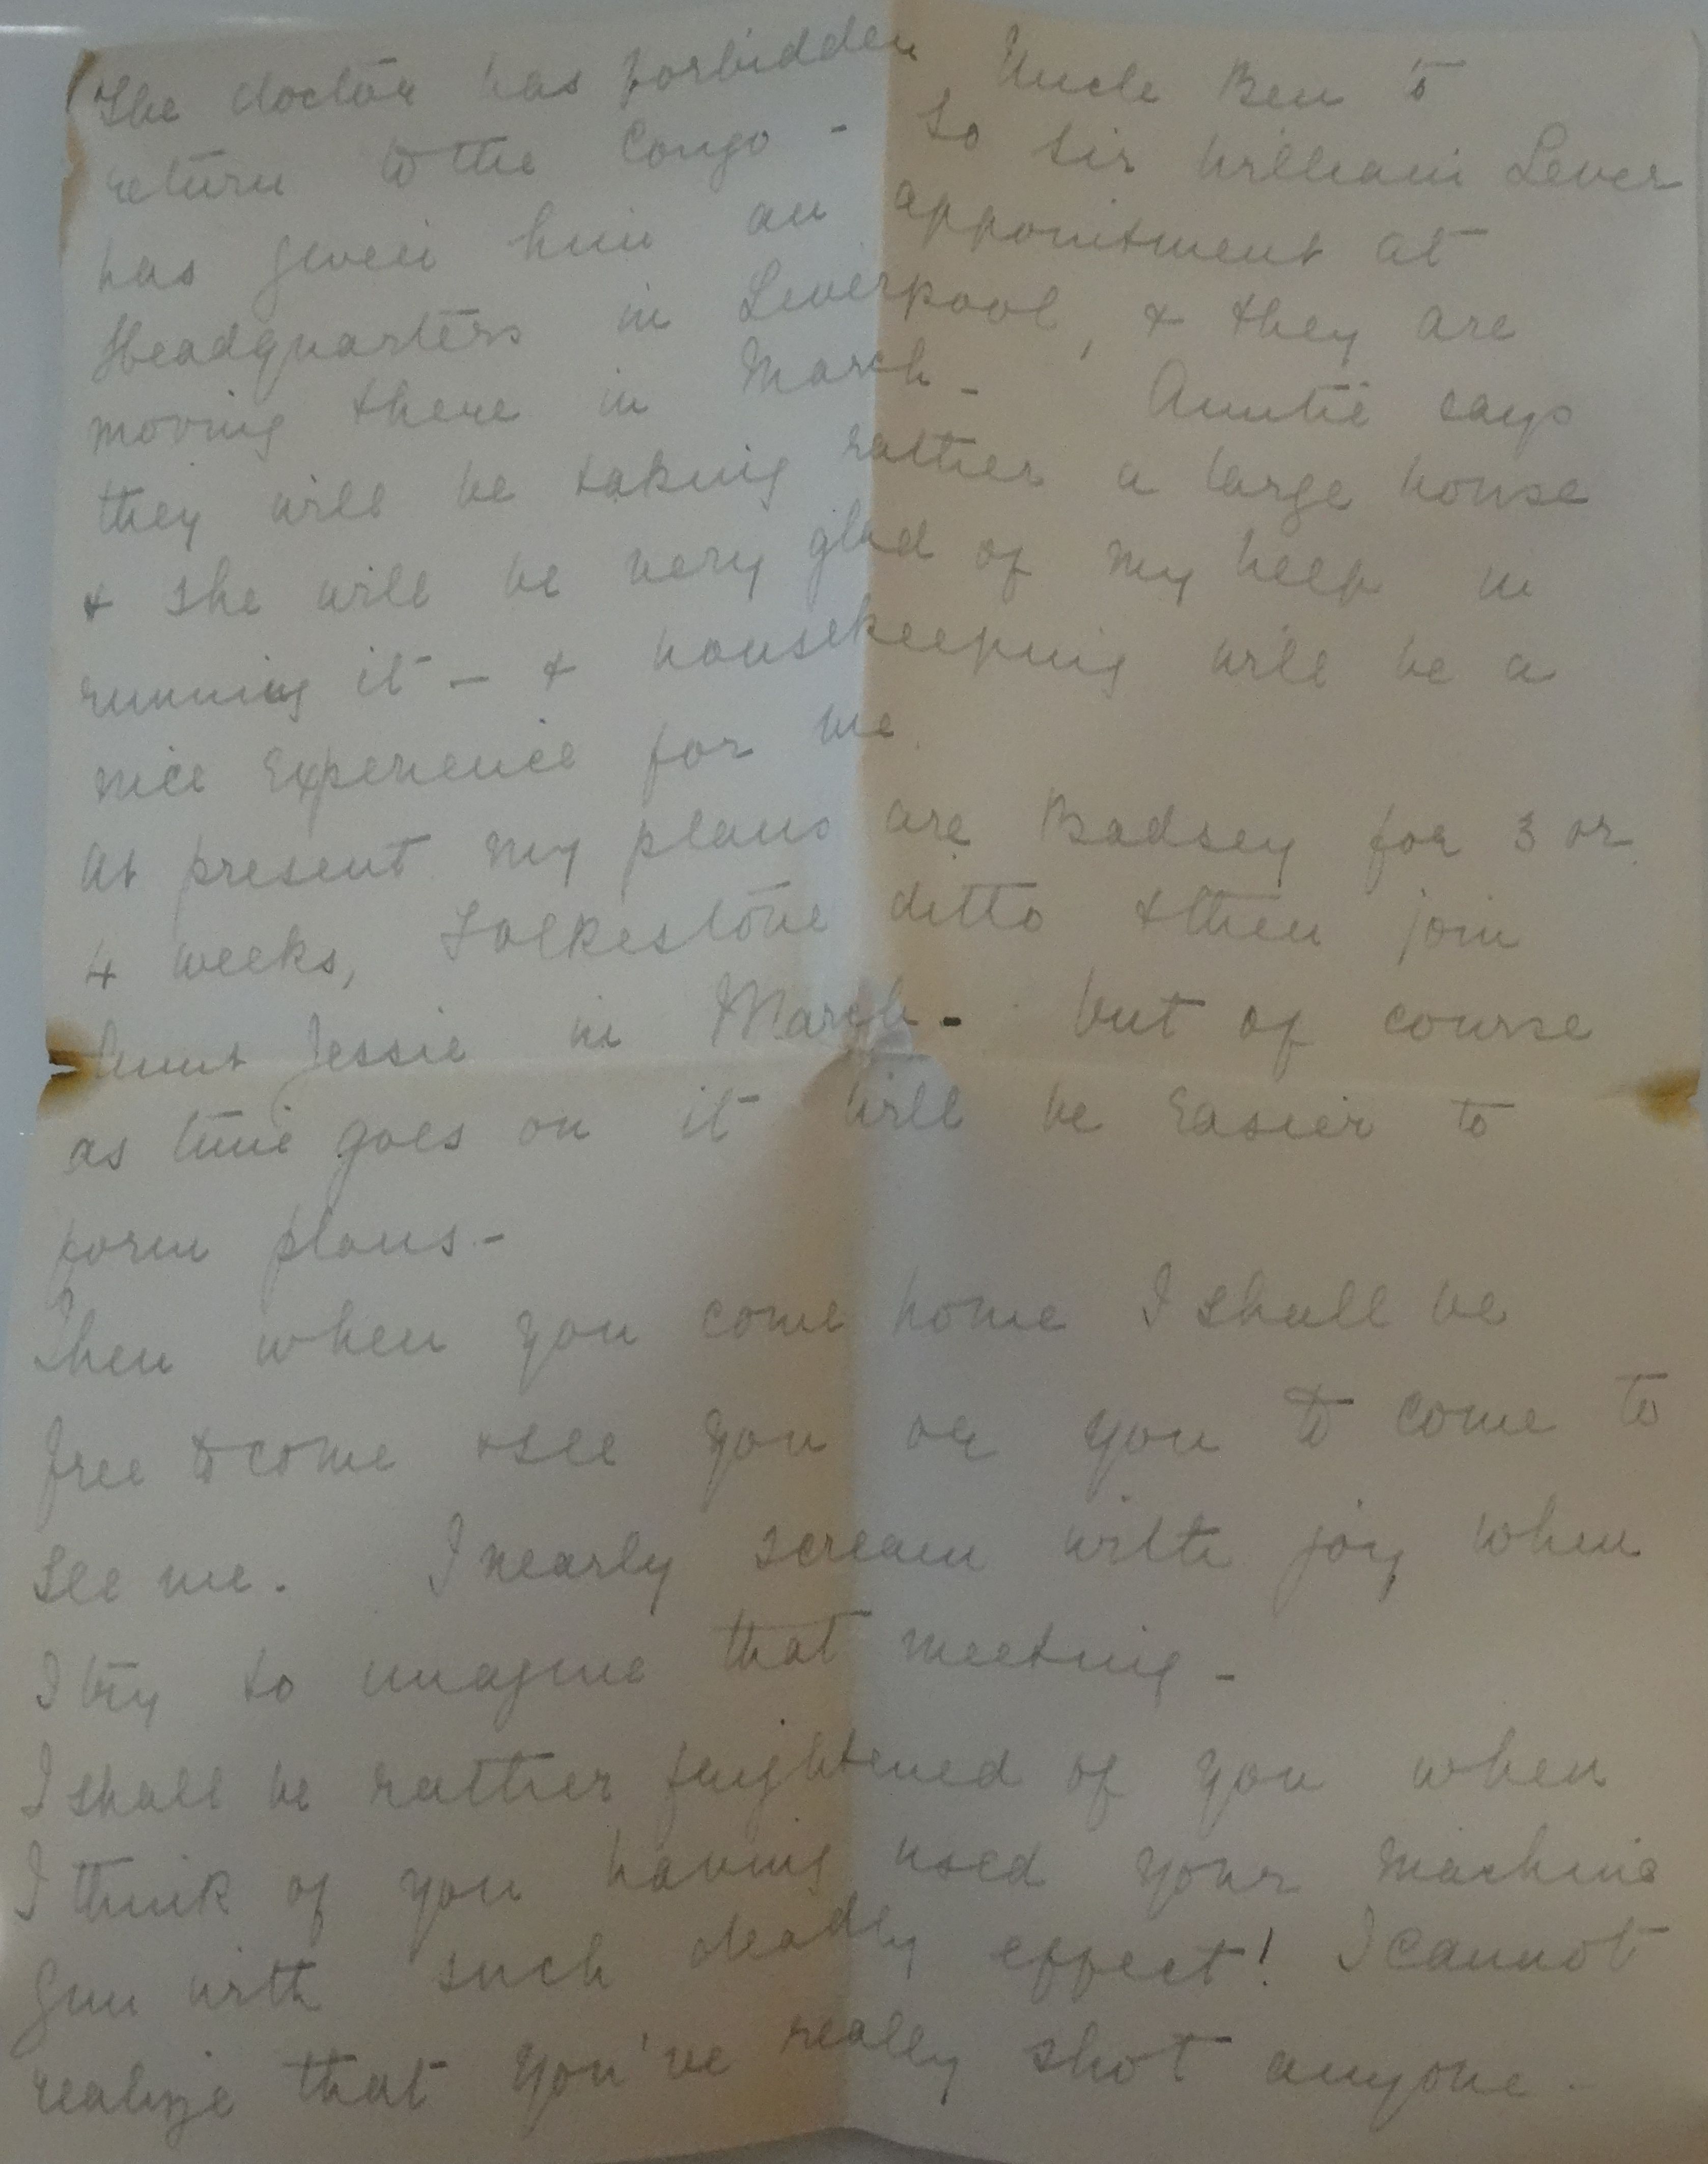 The doctor has forbidden Uncle Ben to
return to the Congo - So Sir William Lever
has given him an appointment at
Headquarters in Liverpool, & they are
moving there in March - Auntie says
they will be taking rather a large house
& she will be very glad of my help in
running it - & housekeeping will be a
nice experience for me.
At present my plans are Badsey for 3 or
4 weeks, Folkestone ditto & then join
Aunt Jessie in March - but of course
as time goes on it will be easier to
form plans -
Then when you come home I shall be
free to come & see you or you to come to
see me. I nearly scream with joy when
I try to imagine that meeting -
I shall be rather frightened of you when
I think of you having used your machine
gun with such deadly effect! I cannot
realize that you've really shot anyone -